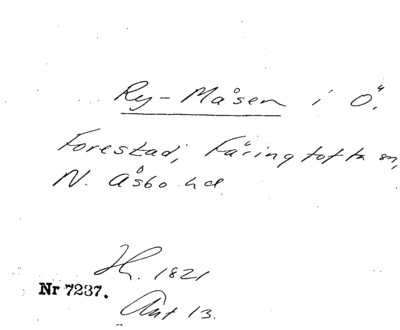 Ry-Måsen i Ö.
Forestad, Färingtofta sn,
N. Åsbo hd
H. 1821
Nr 7237.
Ant 13.